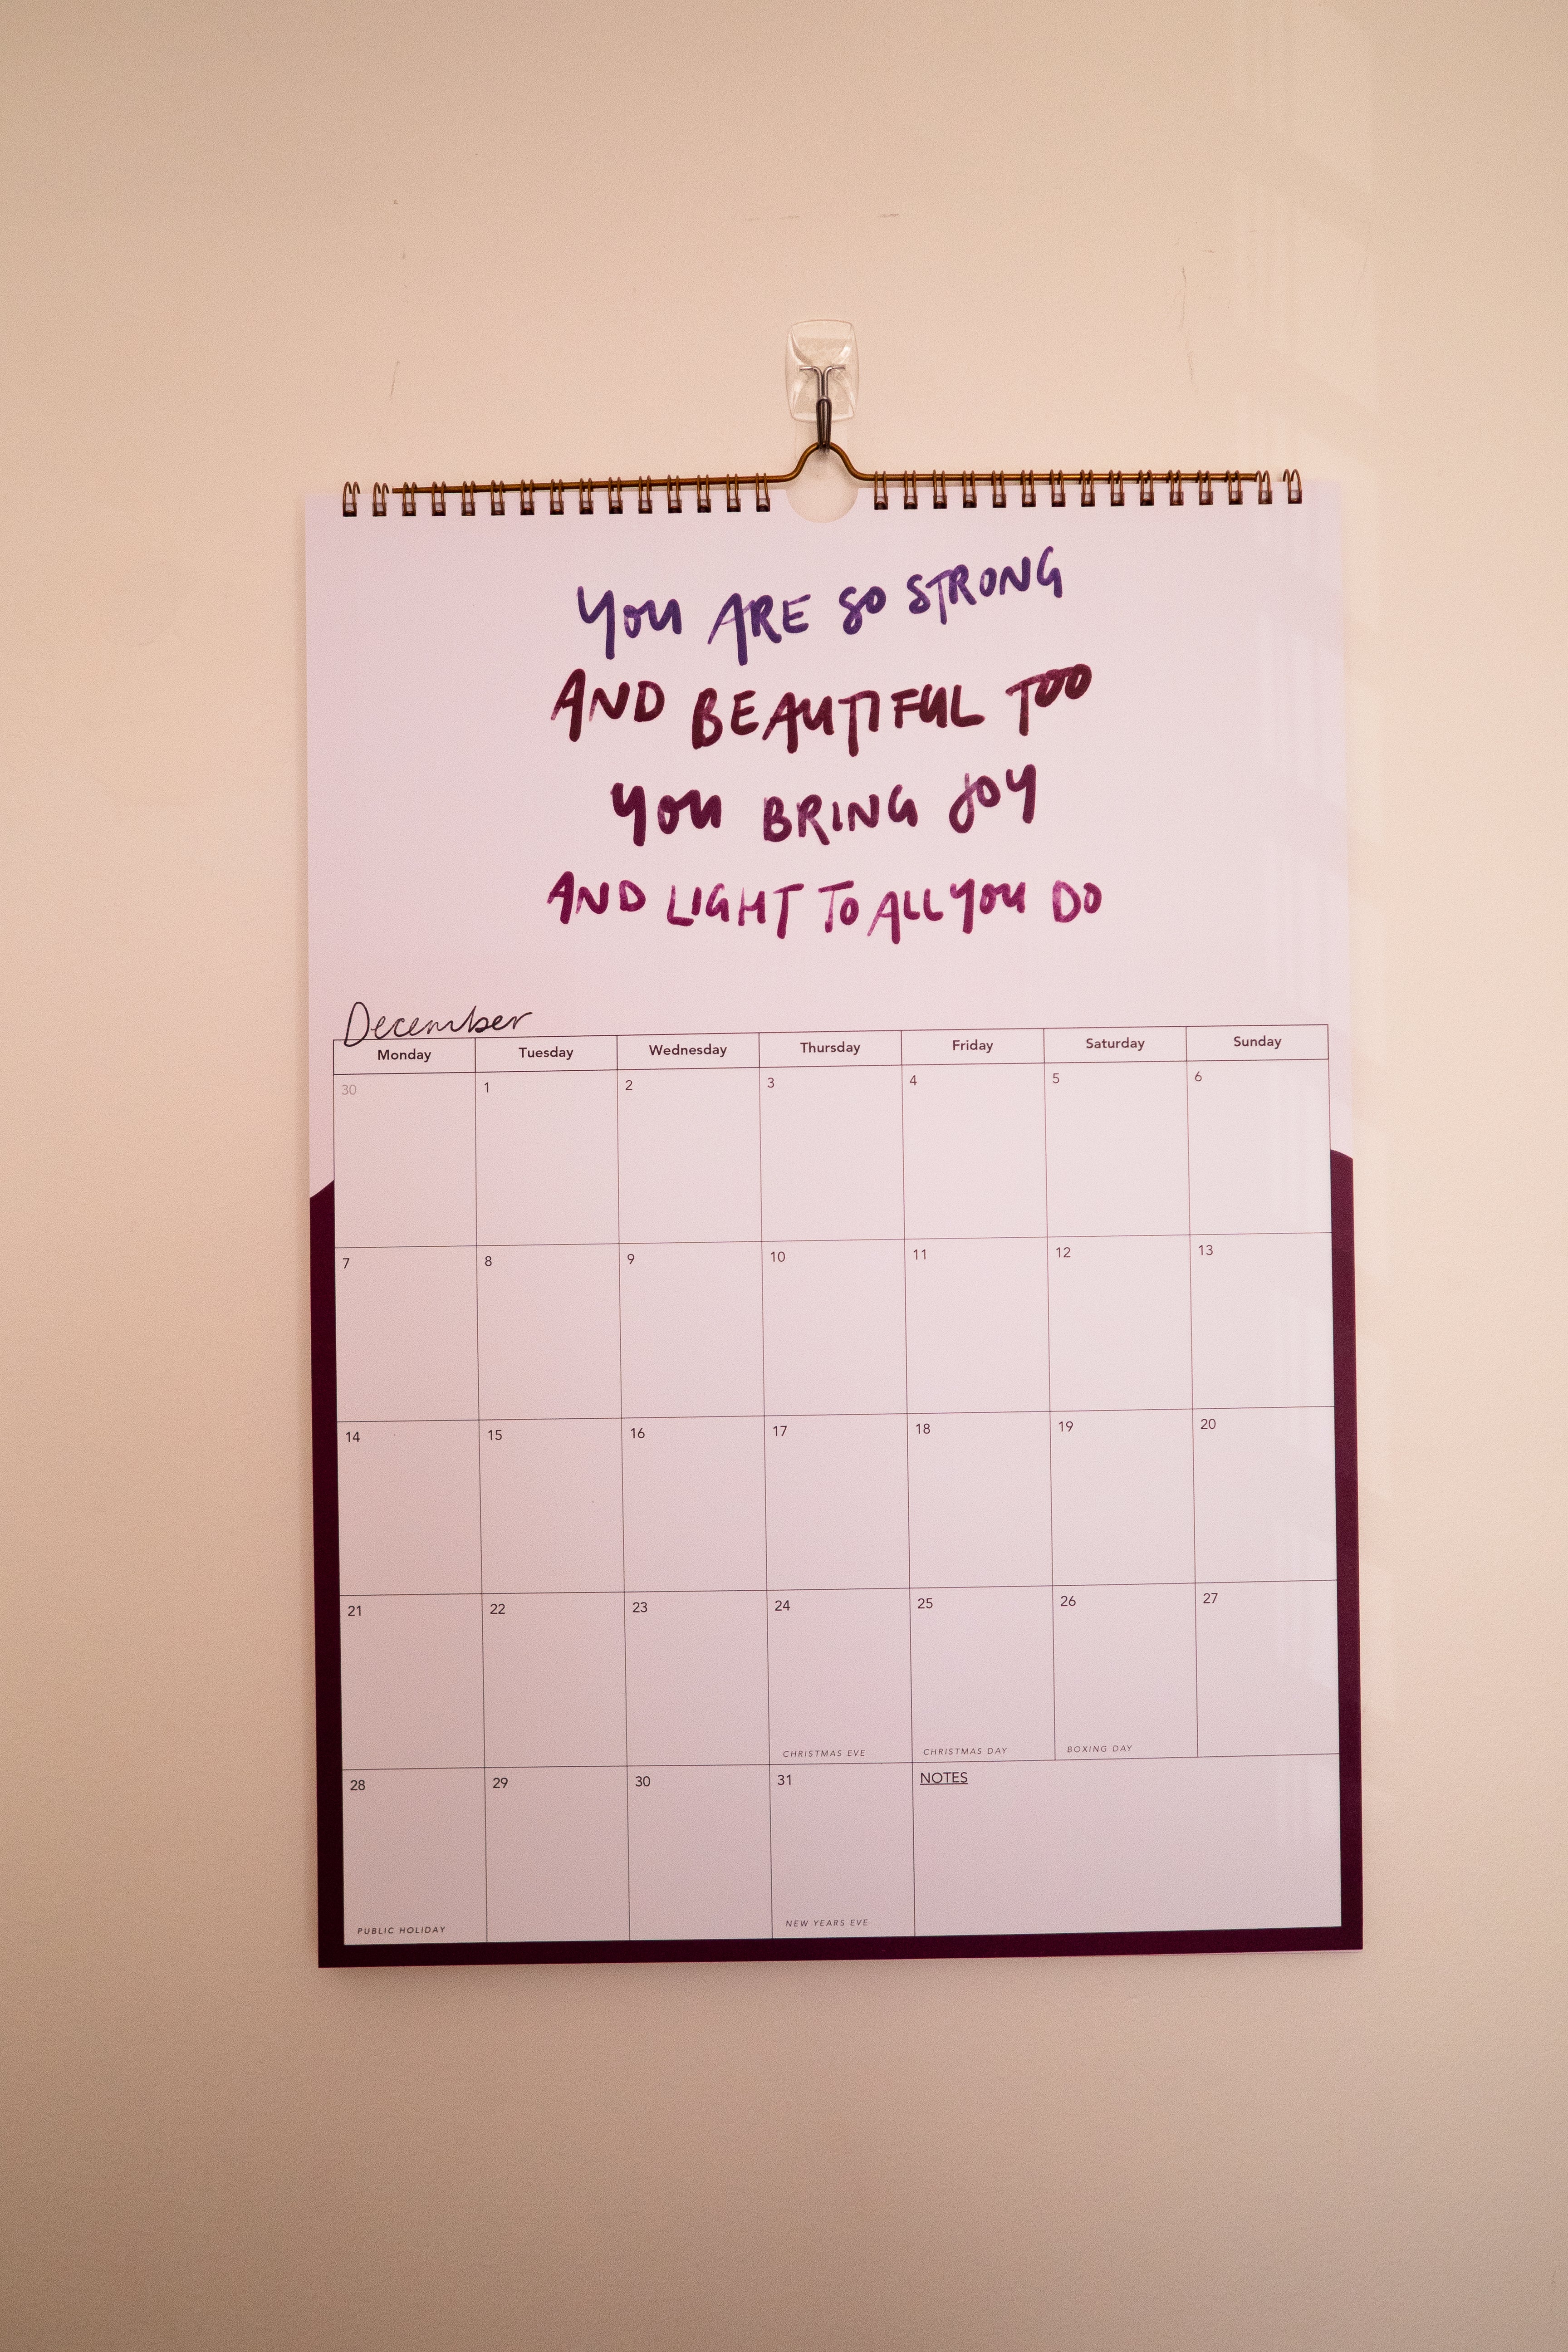 YOU ARE SO STRONG
AND BEAUTIFUL TOO
YOU BRING JOY
AND LIGHT TO ALL YOU DO
December
Monday Tuesday Wednesday Thursday Friday Saturday Sunday
30 1 2 3 4 5 6
7 8 9 10 11 12 13
14 15 16 17 18 19 20
21 22 23 24 25 26 27
CHRISTMAS EVE CHRISTMAS DAY BOXING DAY
28 29 30 31 NOTES
PUBLIC HOLIDAY NEW YEARS EVE